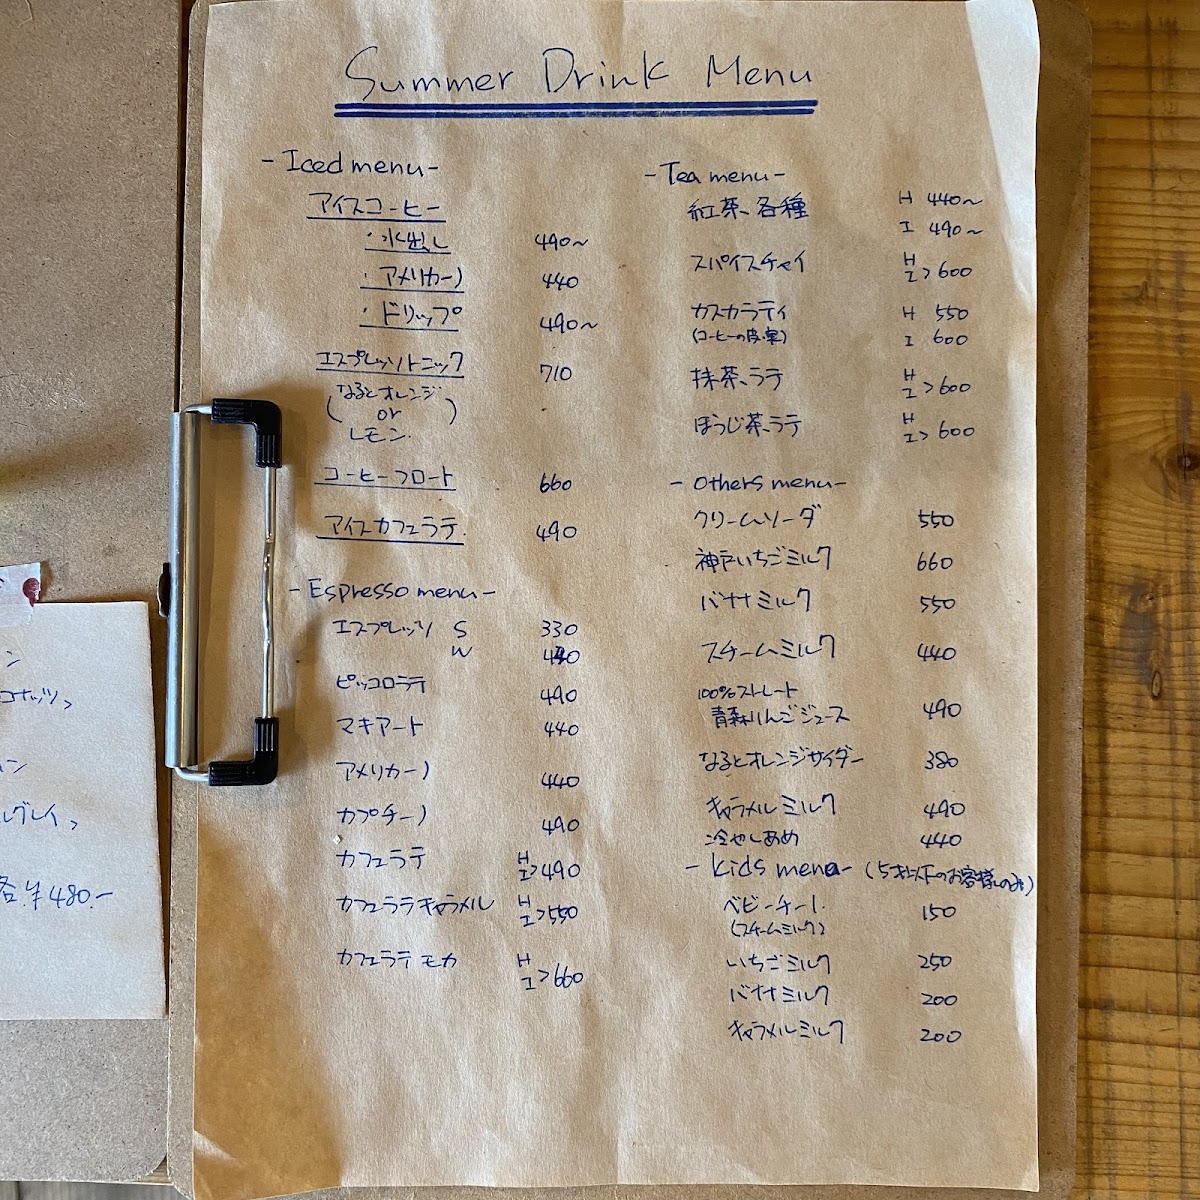 Summer Drink Menu
- Iced menu -
アイスコーヒー
・水出し 490~
・アメリカーノ 440
・ドリップ 490~
エスプレッソトニック 710
(なるとオレンジ
or
レモン)
コーヒーフロート 660
アイスカフェラテ 490
- Espresso menu -
エスプレッソ S 330
W 440
ピッコロラテ 490
マキアート 440
アメリカーノ 440
カプチーノ 490
カフェラテ H I > 490
カフェラテキャラメル H I > 550
カフェラテモカ H I > 660
- Tea menu -
紅茶、各種 H 440~
I 490~
スパイスチャイ H I > 600
カスカラティ H 550
(コーヒーの皮・実) I 600
抹茶、ラテ H I > 600
ほうじ茶、ラテ H I > 600
- Others menu -
クリームソーダ 550
神戸いちごミルク 660
バナナミルク 550
スチームミルク 440
100%ストレート
青森りんごジュース 490
なるとオレンジサイダー 380
キャラメルミルク 490
冷やしあめ 440
- Kids menu - (5才以下のお客様のみ)
ベビーチーノ 150
(スチームミルク)
いちごミルク 250
バナナミルク 200
キャラメルミルク 200
ン
コナッツ、
ン
ルグレイ、
各¥480.-